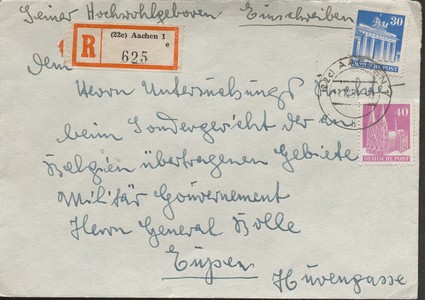 Seiner Hochwohlgeboren Einschreiben
30
DEUTSCHE POST
R (22c) Aachen 1
e
625
(22c) AACHEN
40
DEUTSCHE POST
dem
Herrn Untersuchungs
beim Sondergericht der an
Belgien übertragenen Gebiete
Militär Gouvernement
Herrn General Bolle
Eupen
Huvengasse